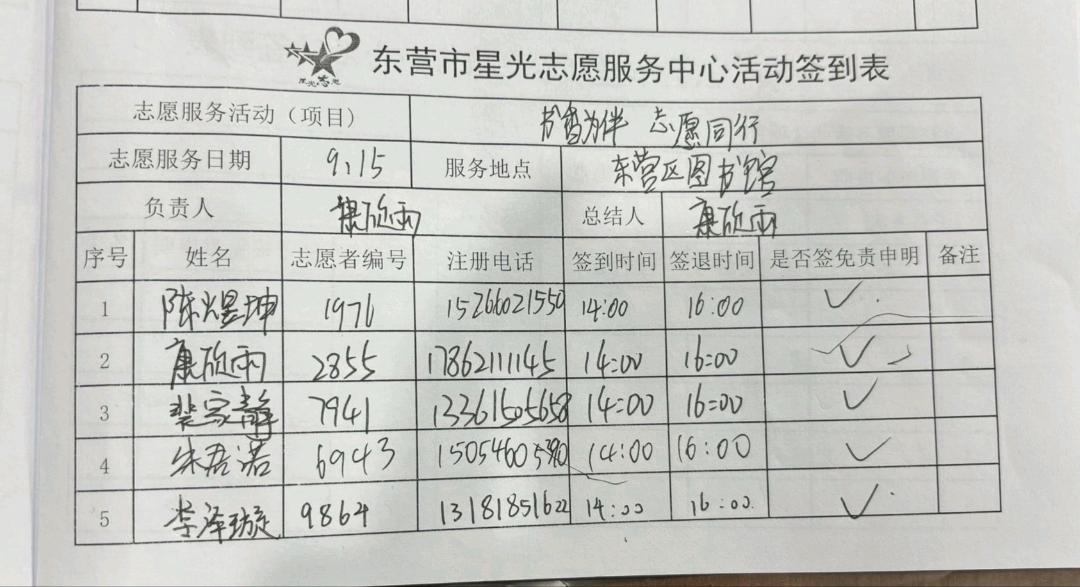 星光志愿
东营市星光志愿服务中心活动签到表
志愿服务活动（项目） 书香为伴 志愿同行
志愿服务日期 9.15 服务地点 东营区图书馆
负责人 康欣雨 总结人 康欣雨
序号 姓名 志愿者编号 注册电话 签到时间 签退时间 是否签免责申明 备注
1 陈煜坤 1976 15266021550 14:00 16:00 ✓
2 康欣雨 2855 17862111145 14:00 16:00 ✓
3 裴家静 7941 13361505658 14:00 16:00 ✓
4 朱君诺 6943 15054605390 14:00 16:00 ✓
5 李泽璇 9864 13181851622 14:00 16:00 ✓